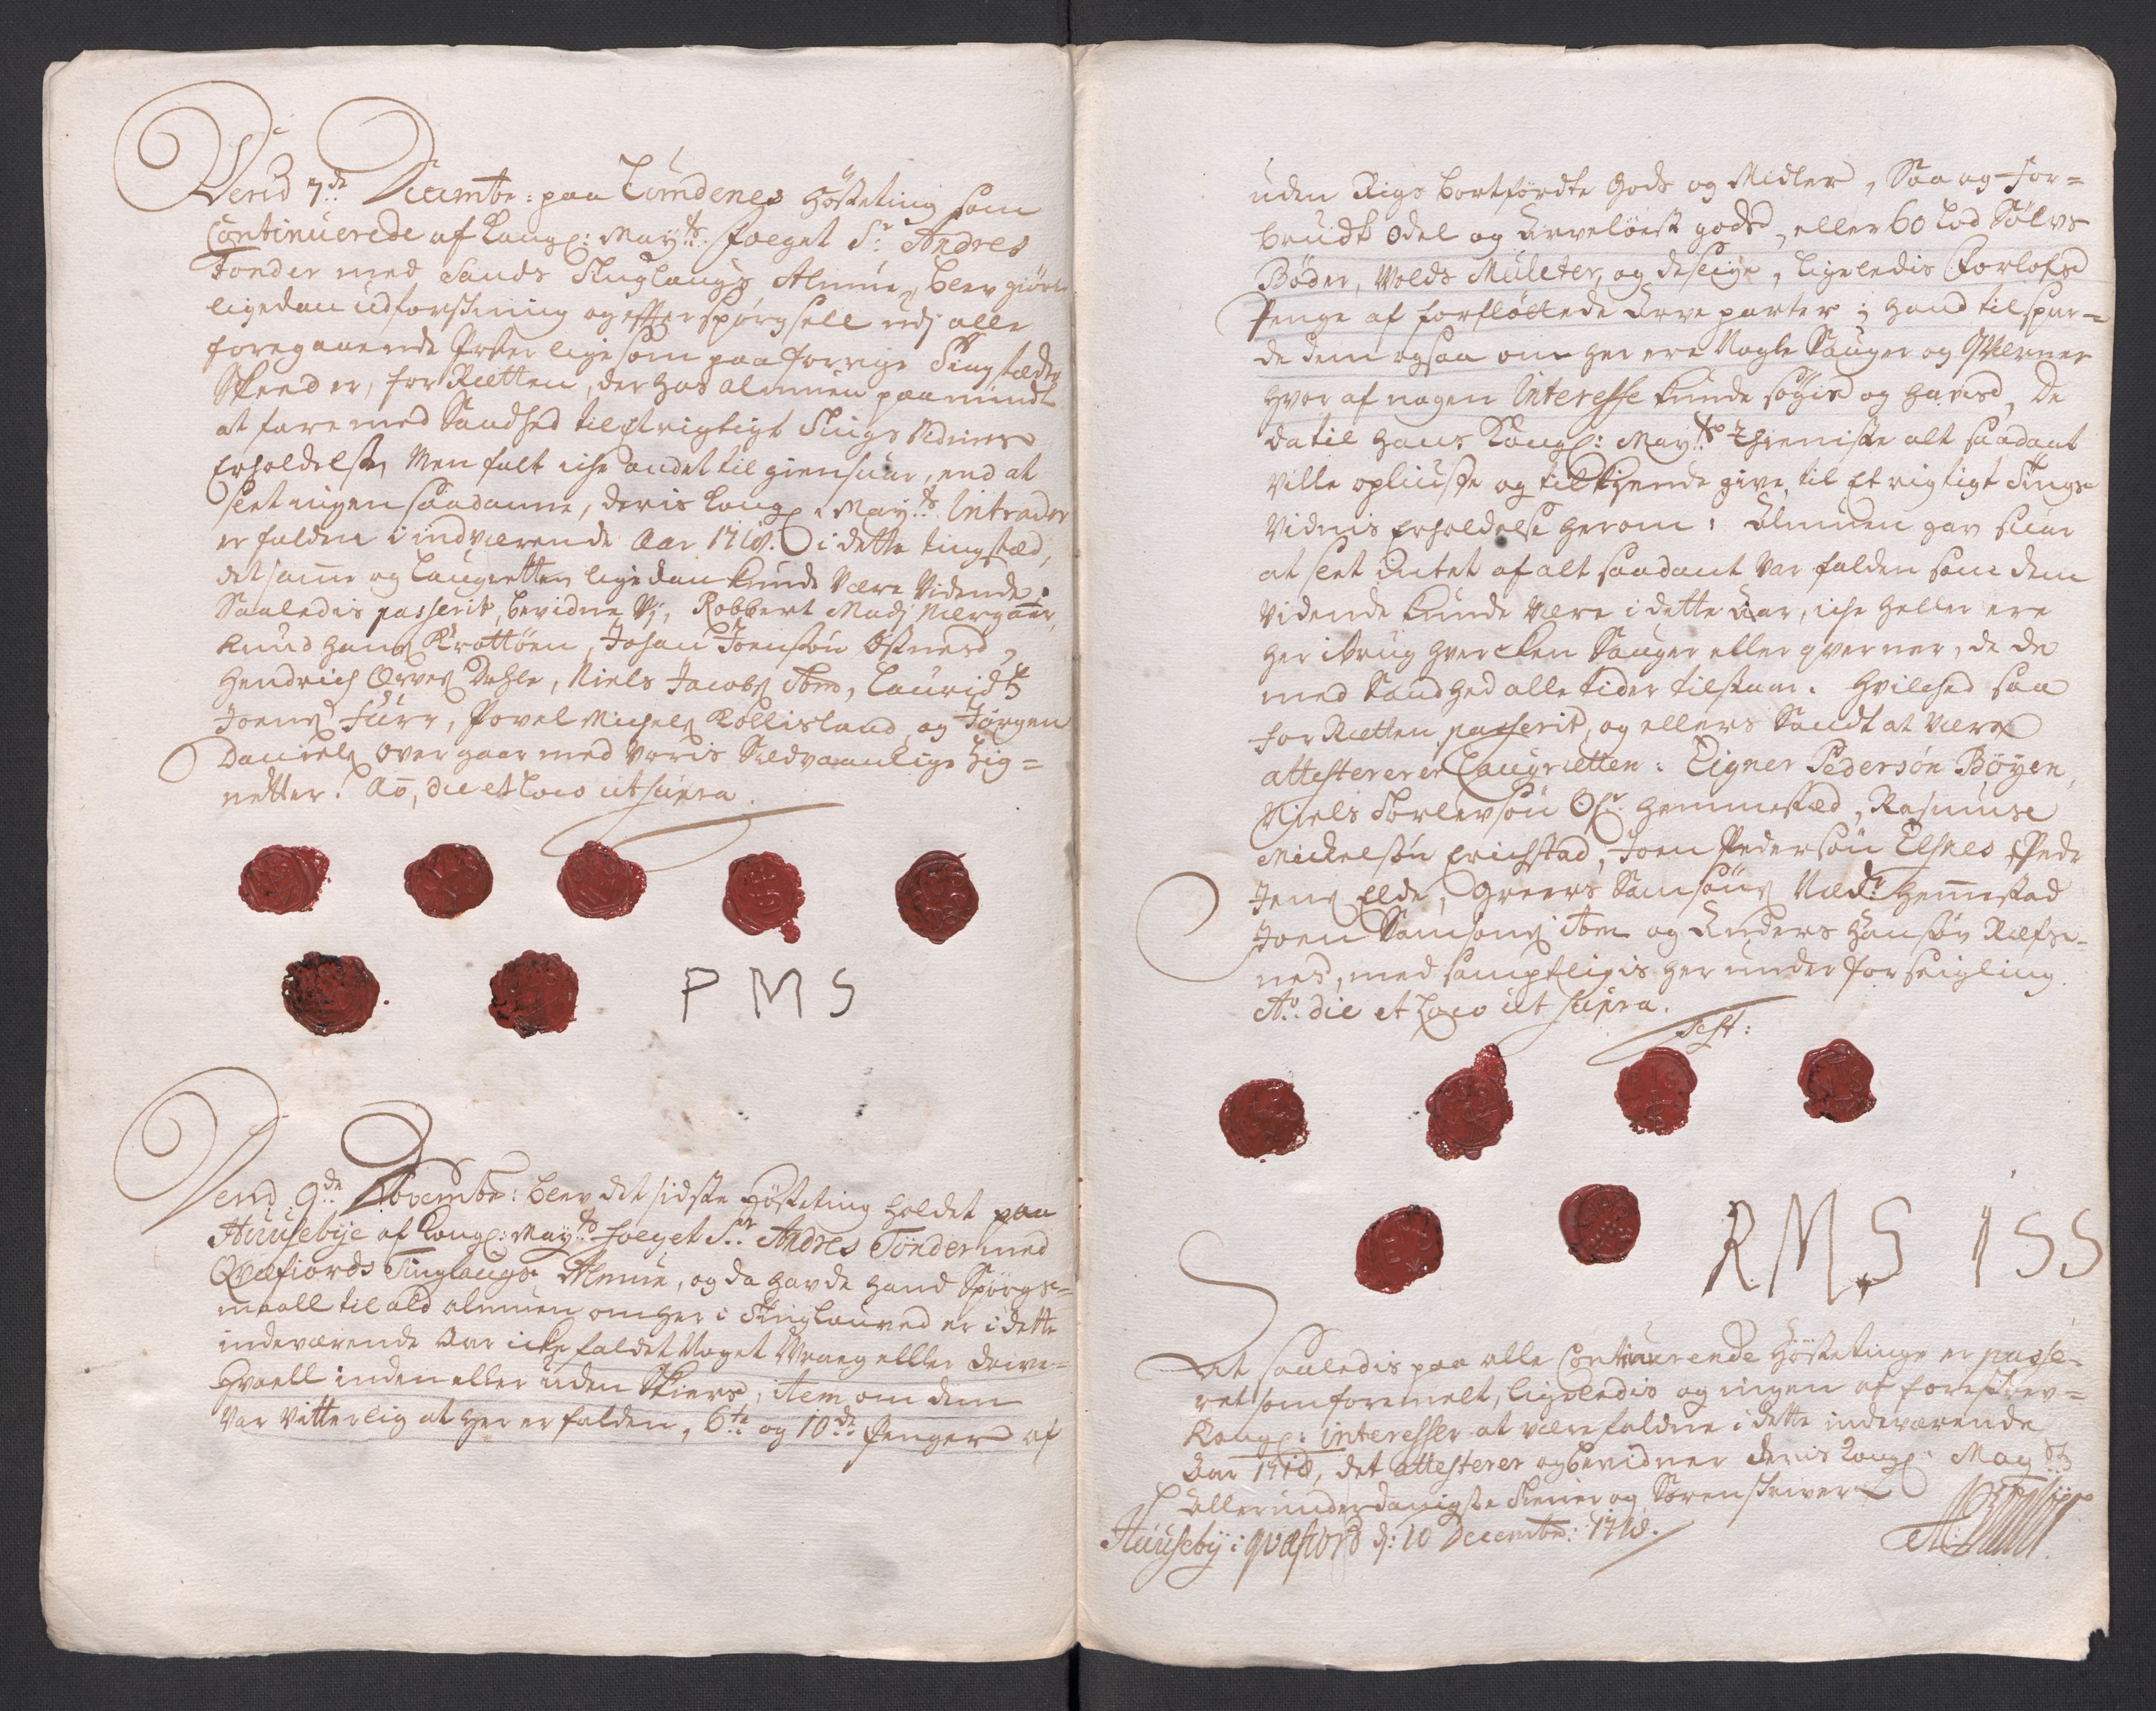 Dend 7de Decembr: paa Lomdenes Høsteting som
Continuerede af Kongl: Mayts: foeget Sr Andres
Tonder med Sands Tinglaugs Almue, blev giørt
ligedan udforskning og efterspørgsell udj alle
foregaaende Poster lige som paa forrige Tingstæder
Skeed er, for Rætten, der hos almuen paamindt
at fare med Sandhed til et rigtigt Tings Vidnes
Erholdelse, Men falt iche andet til giensuar, end at
slet ingen saadanne, deris Kongl: Mayts: Intrader
er falden i indværende Aar 1710. i dette tingsted,
det same og Laugretten ligedan kunde være Vidende.
Saaledis passerit, bevidne Vj, Robbert Madj Nergaar,
Knud Hans Krottøen, Johan Joensøn Østnes,
Hendrich Dehle, Niels Jacobs ibm, Laurids
Joens Furr, Povel Michels Kollisland og Jørgen
Daniels Overgaar med voris Sædvaanlige Zig=
netter. Ao, die et loco ut supra.
P M S
Dend 9de Decembr: blev det sidste Høsteting holdet paa
Huusebye af Kongl: Mayts foeget Sr. Andres Tønder med
Qvæfiords Tinglaugs Almue, og da havde hand Spørgs=
maall til ald almuen om her i Tinglauved er i dette
indeværende Aar icke faldet Noget Vraag elller drive=
Hvaell inden eller uden Skiers, item om dem
var vitterlig at her er falden, 6te og 10de Penger af
uden Rigs bortførdte Gods og Midler, Saa og For=
brudt Odel og Arveløest gods, eller 60 Lod Sølvs
Bøder, Volds Mulcter, og deslige, ligeledis Forlofs
Penge af forfløttede Arve parter; hand tilspur=
de dem ogsaa om her ere Nogle Sauger og Qverner
hvor af nogen Interesse kunde søgis og havis, De
da til Hans Kongl: Mayts thieniste alt saadant
ville opliuse og tilkiende give, til et rigtigt Tings
Vidnis Erholdelse herom: Almuen gav suar
at slet intet af alt saadant var falden som dem
Vidende kunde være i dette Aar, iche heller ere
her ibrug hvercken Sauger eller qverner, de de
med Sandhed alle tider tilstaar. Hvilched saa
for Rætten passerit, og ellers Sandt at være
attesterer Laugrætten: Eigner Pedersøn Bøyen,
Niels Torlevsøn Ofr. Hemmestæd, Rasmus
Mickelsøn Erichstad, Joen Pedersøn Elsnes, Peder
Jens Elde, Greers Samsøns Nædr Hemestad
Joen Samsøns ibm og Anders Hansøn Refs=
nes, med samptligis her under forseigling
Ao. die et loco ut supra.
R M S I S S
At saaledis paa alle Continuerende Høstetinge er passe=
ret som formelt, ligeledis og ingen af forskrev=
Kongl: Interesser at være faldne i dette indeværende
Aar 1710, det attesterer og bevidner deris Kongl: Mayts
Allerunderdanigste Tiener og Sorenskriver
Huuseby i qvæfiord d: 10 Decembr: 1710.